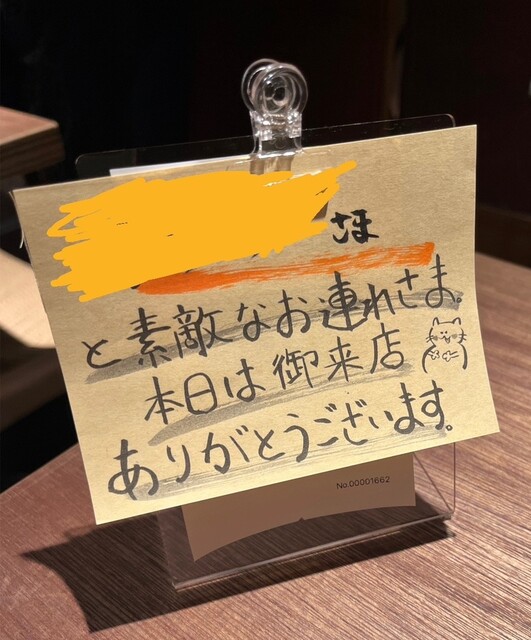 さま
と素敵なお連れさま。
本日は御来店
ありがとうございます。
No.00001662